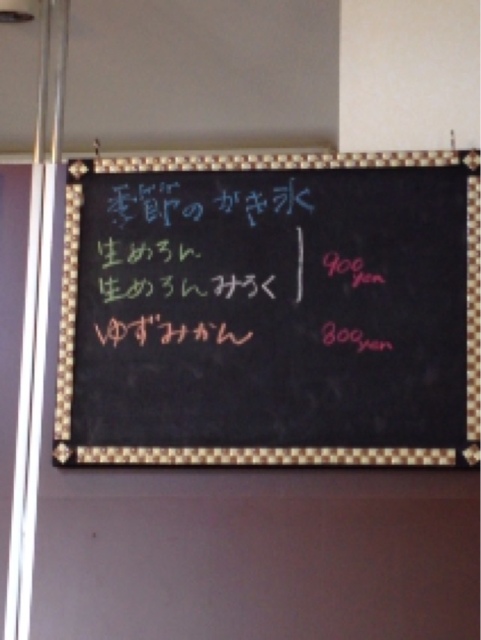 季節のかき氷
生めろん
生めろんみるく
900yen
ゆずみかん
800yen